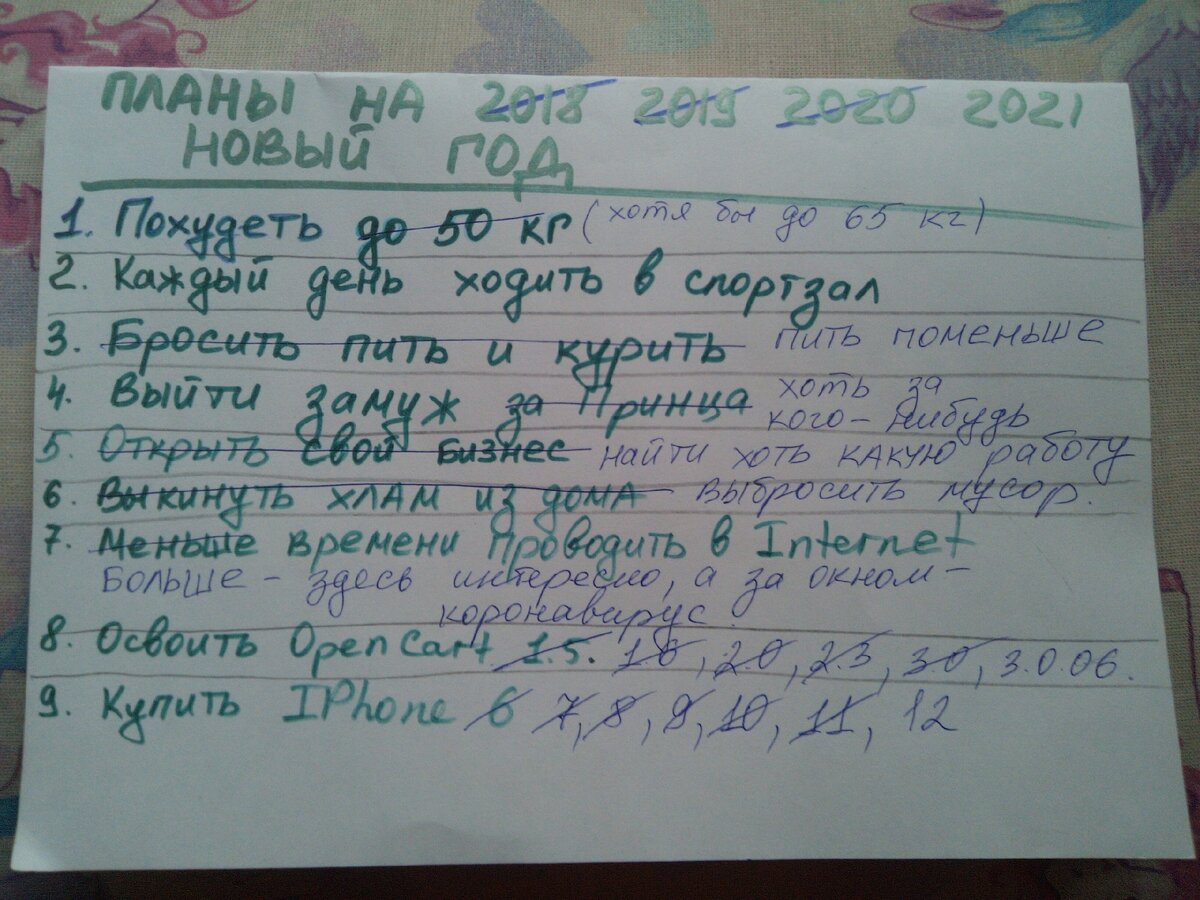 ПЛАНЫ НА 2018 2019 2020 2021
НОВЫЙ ГОД
1. Похудеть до 50 кг (хотя бы до 65 кг)
2. Каждый день ходить в спортзал
3. Бросить пить и курить пить поменьше
4. Выйти замуж за Принца хоть за
кого-нибудь
5. Открыть свой бизнес найти хоть какую работу
6. Выкинуть хлам из дома - выбросить мусор.
7. Меньше времени проводить в Internet
Больше - здесь интересно, а за окном -
коронавирус
8. Освоить OpenCart 1.5. 1.6, 2.0, 2.3, 3.0, 3.0.06.
9. Купить IPhone 6 7, 8, 9, 10, 11, 12